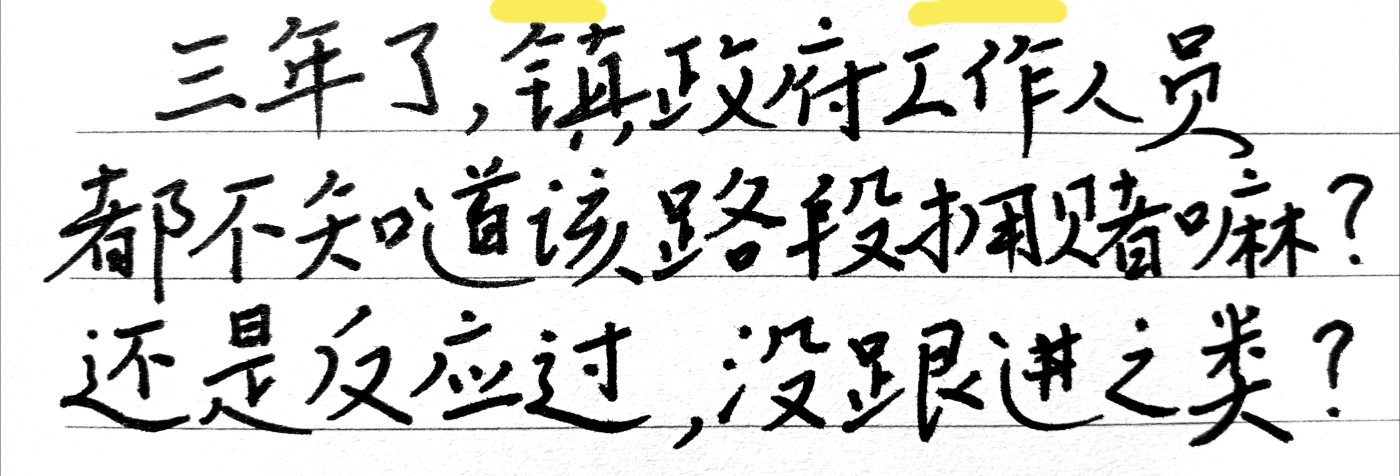 三年了,镇政府工作人员
都不知道该路段拥赌嘛?
还是反应过,没跟进之类?